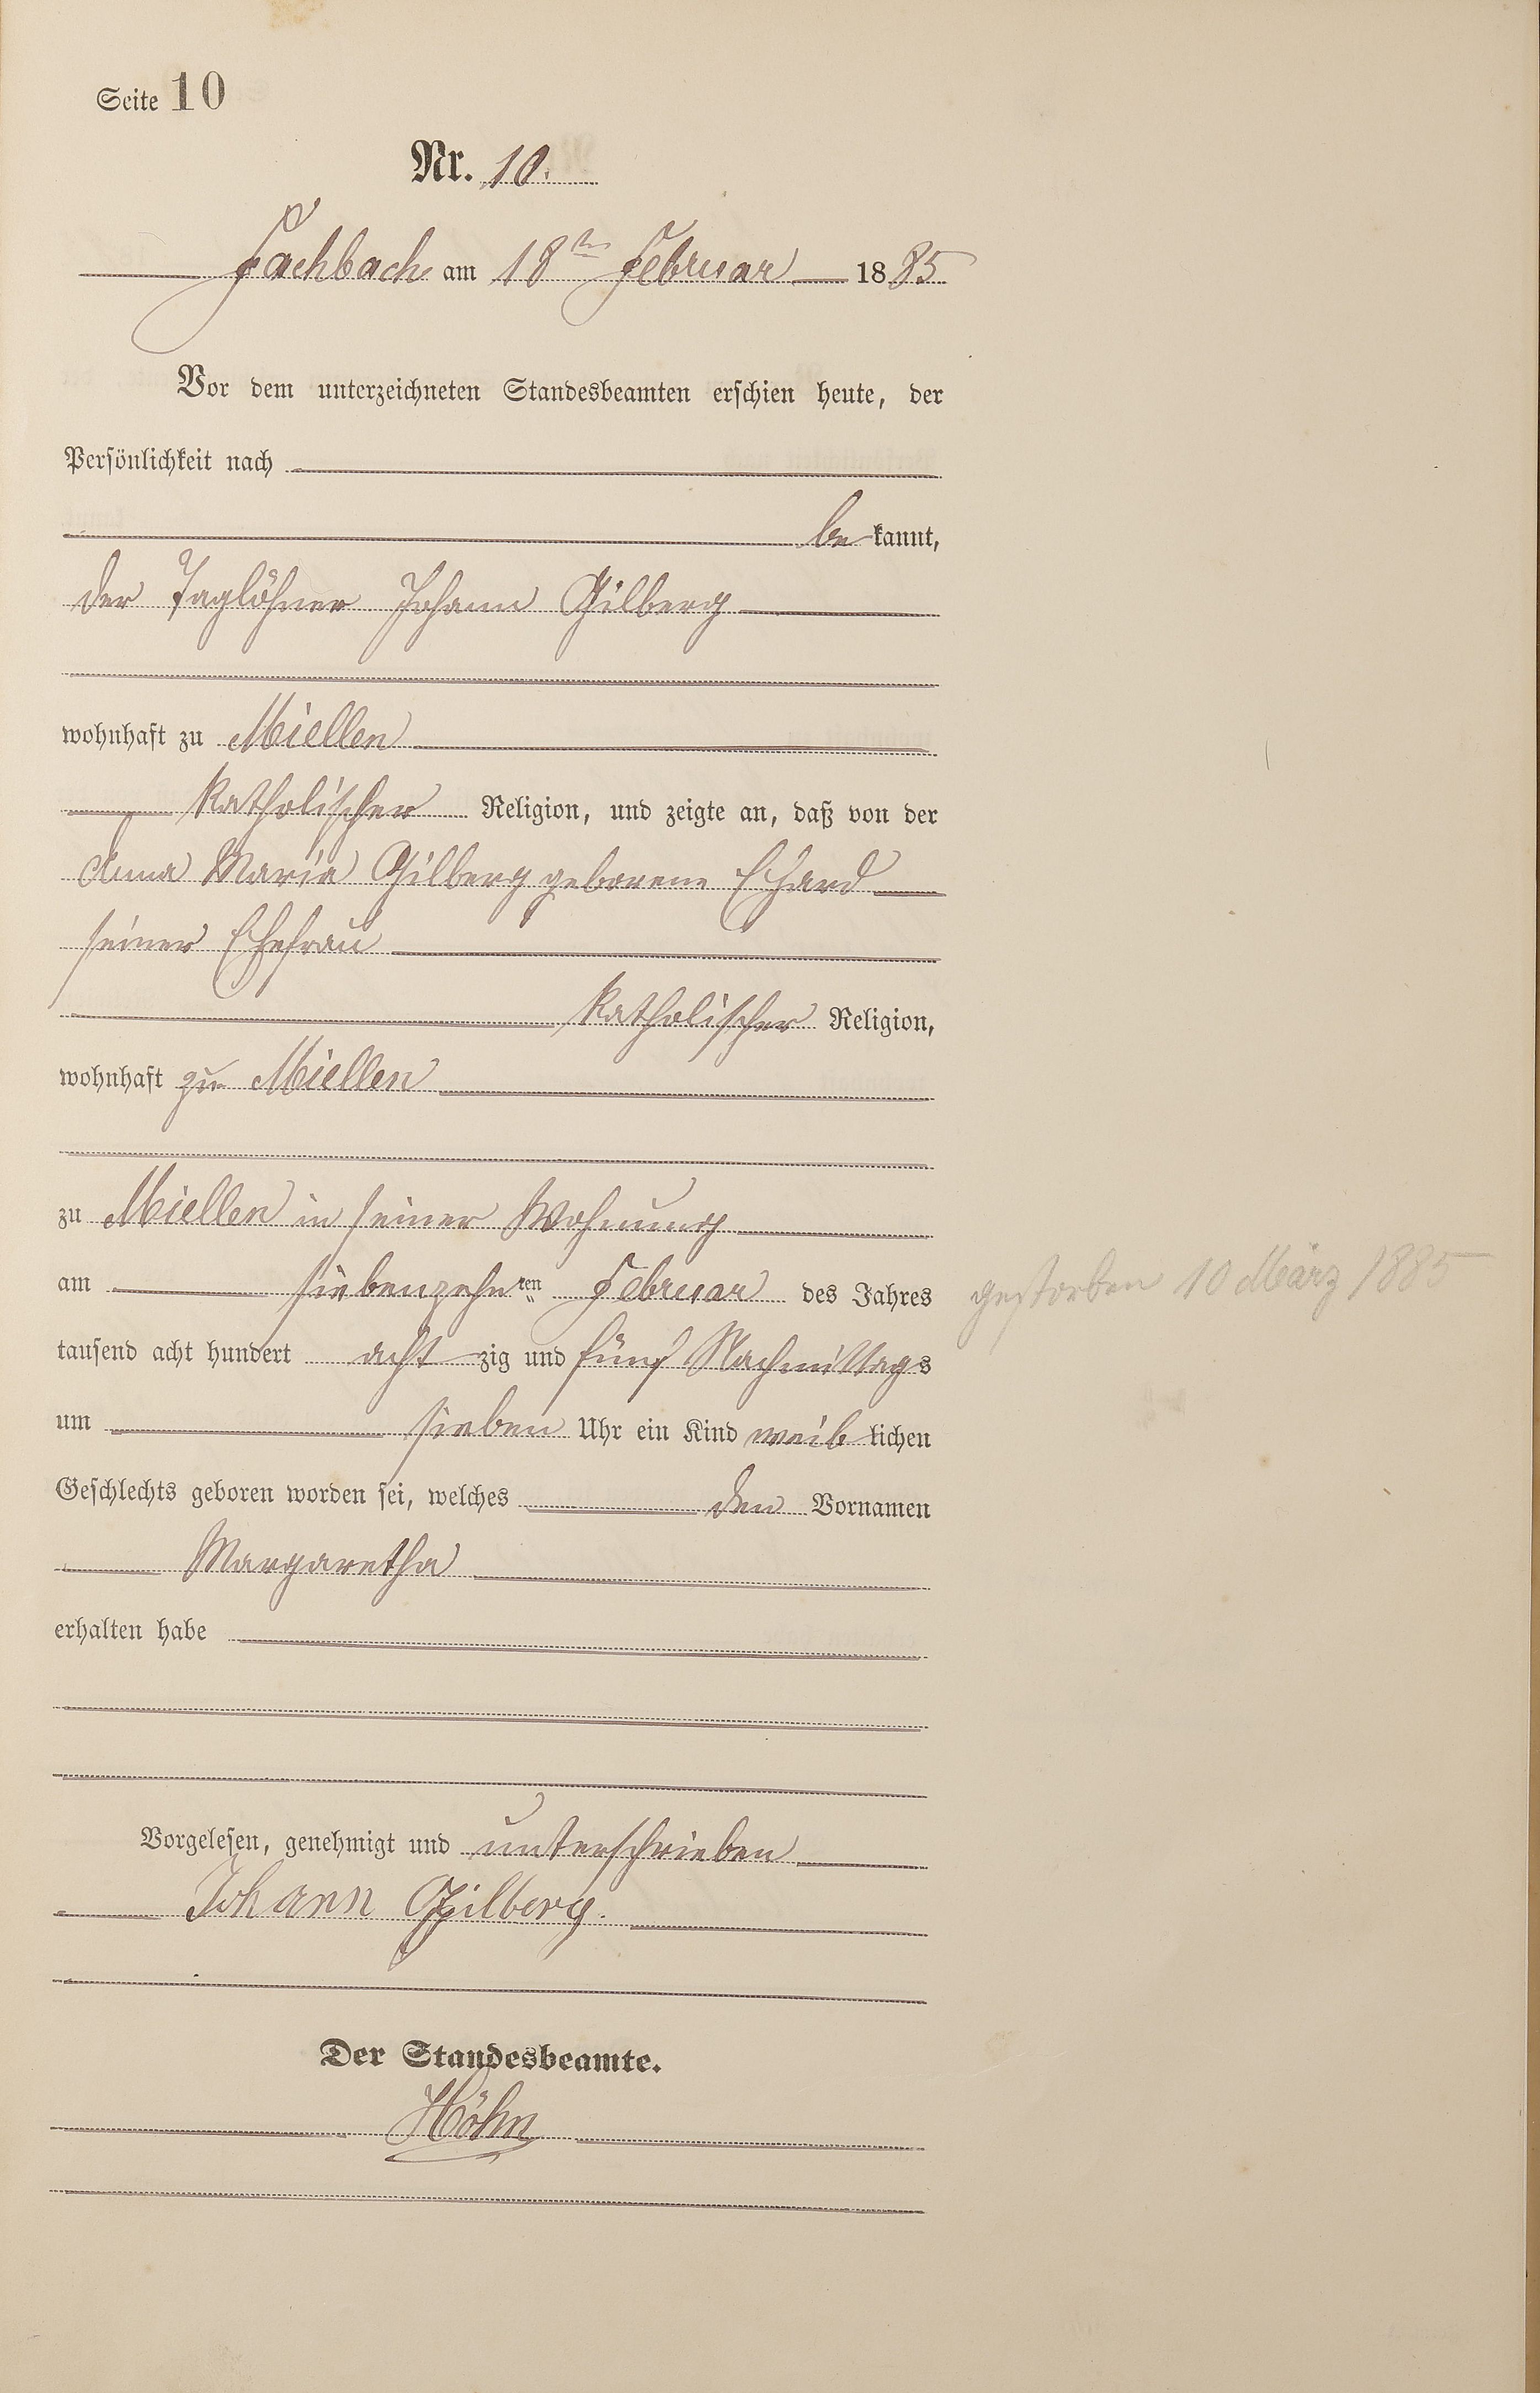 Seite 10
Nr. 10.
Fachbach am 18ten Februar 1885
Vor dem unterzeichneten Standesbeamten erschien heute, der
Persönlichkeit nach
bekannt,
der Taglöhner Johann Gilberg
wohnhaft zu Miellen
katholischer Religion, und zeigte an, daß von der
Anna Maria Gilberg geborene Ehard
seiner Ehefrau
katholischer Religion,
wohnhaft zu Miellen
zu Miellen in seiner Wohnung
am siebenzehnten Februar des Jahres
tausend acht hundert achtzig und fünf Nachmittags
um sieben Uhr ein Kind weiblichen
Geschlechts geboren worden sei, welches den Vornamen
Margaretha
erhalten habe
Vorgelesen, genehmigt und unterschrieben
Johann Gilberg.
Der Standesbeamte.
Höhn
gestorben 10 März 1885